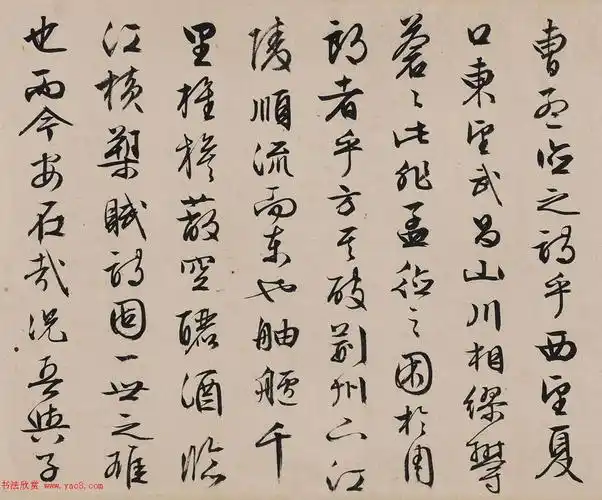 曹孟德之詩乎西望夏
口東望武昌山川相繆欝
蒼〻此非孟德之困於周
郎者乎方其破荊州下江
陵順流而東也舳艫千
里旌旗蔽空釃酒臨
江橫槊賦詩固一世之雄
也而今安在哉况吾與子
书法欣赏 www.yac8.com